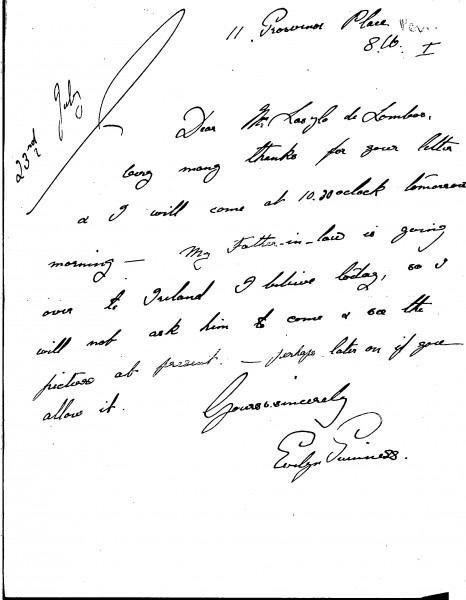 11 Grosvenor Place
S.W. I
23rd July
Dear Mr Laszlo de Lombos.
Very many thanks for your letter
& I will come at 10.30 oclock tomorrow
morning — My Father-in-law is going
over to Ireland I believe today, so I
will not ask him to come & see the
picture at present. — perhaps later on if you
allow it.
Yours sincerely
Evelyn Guinness.